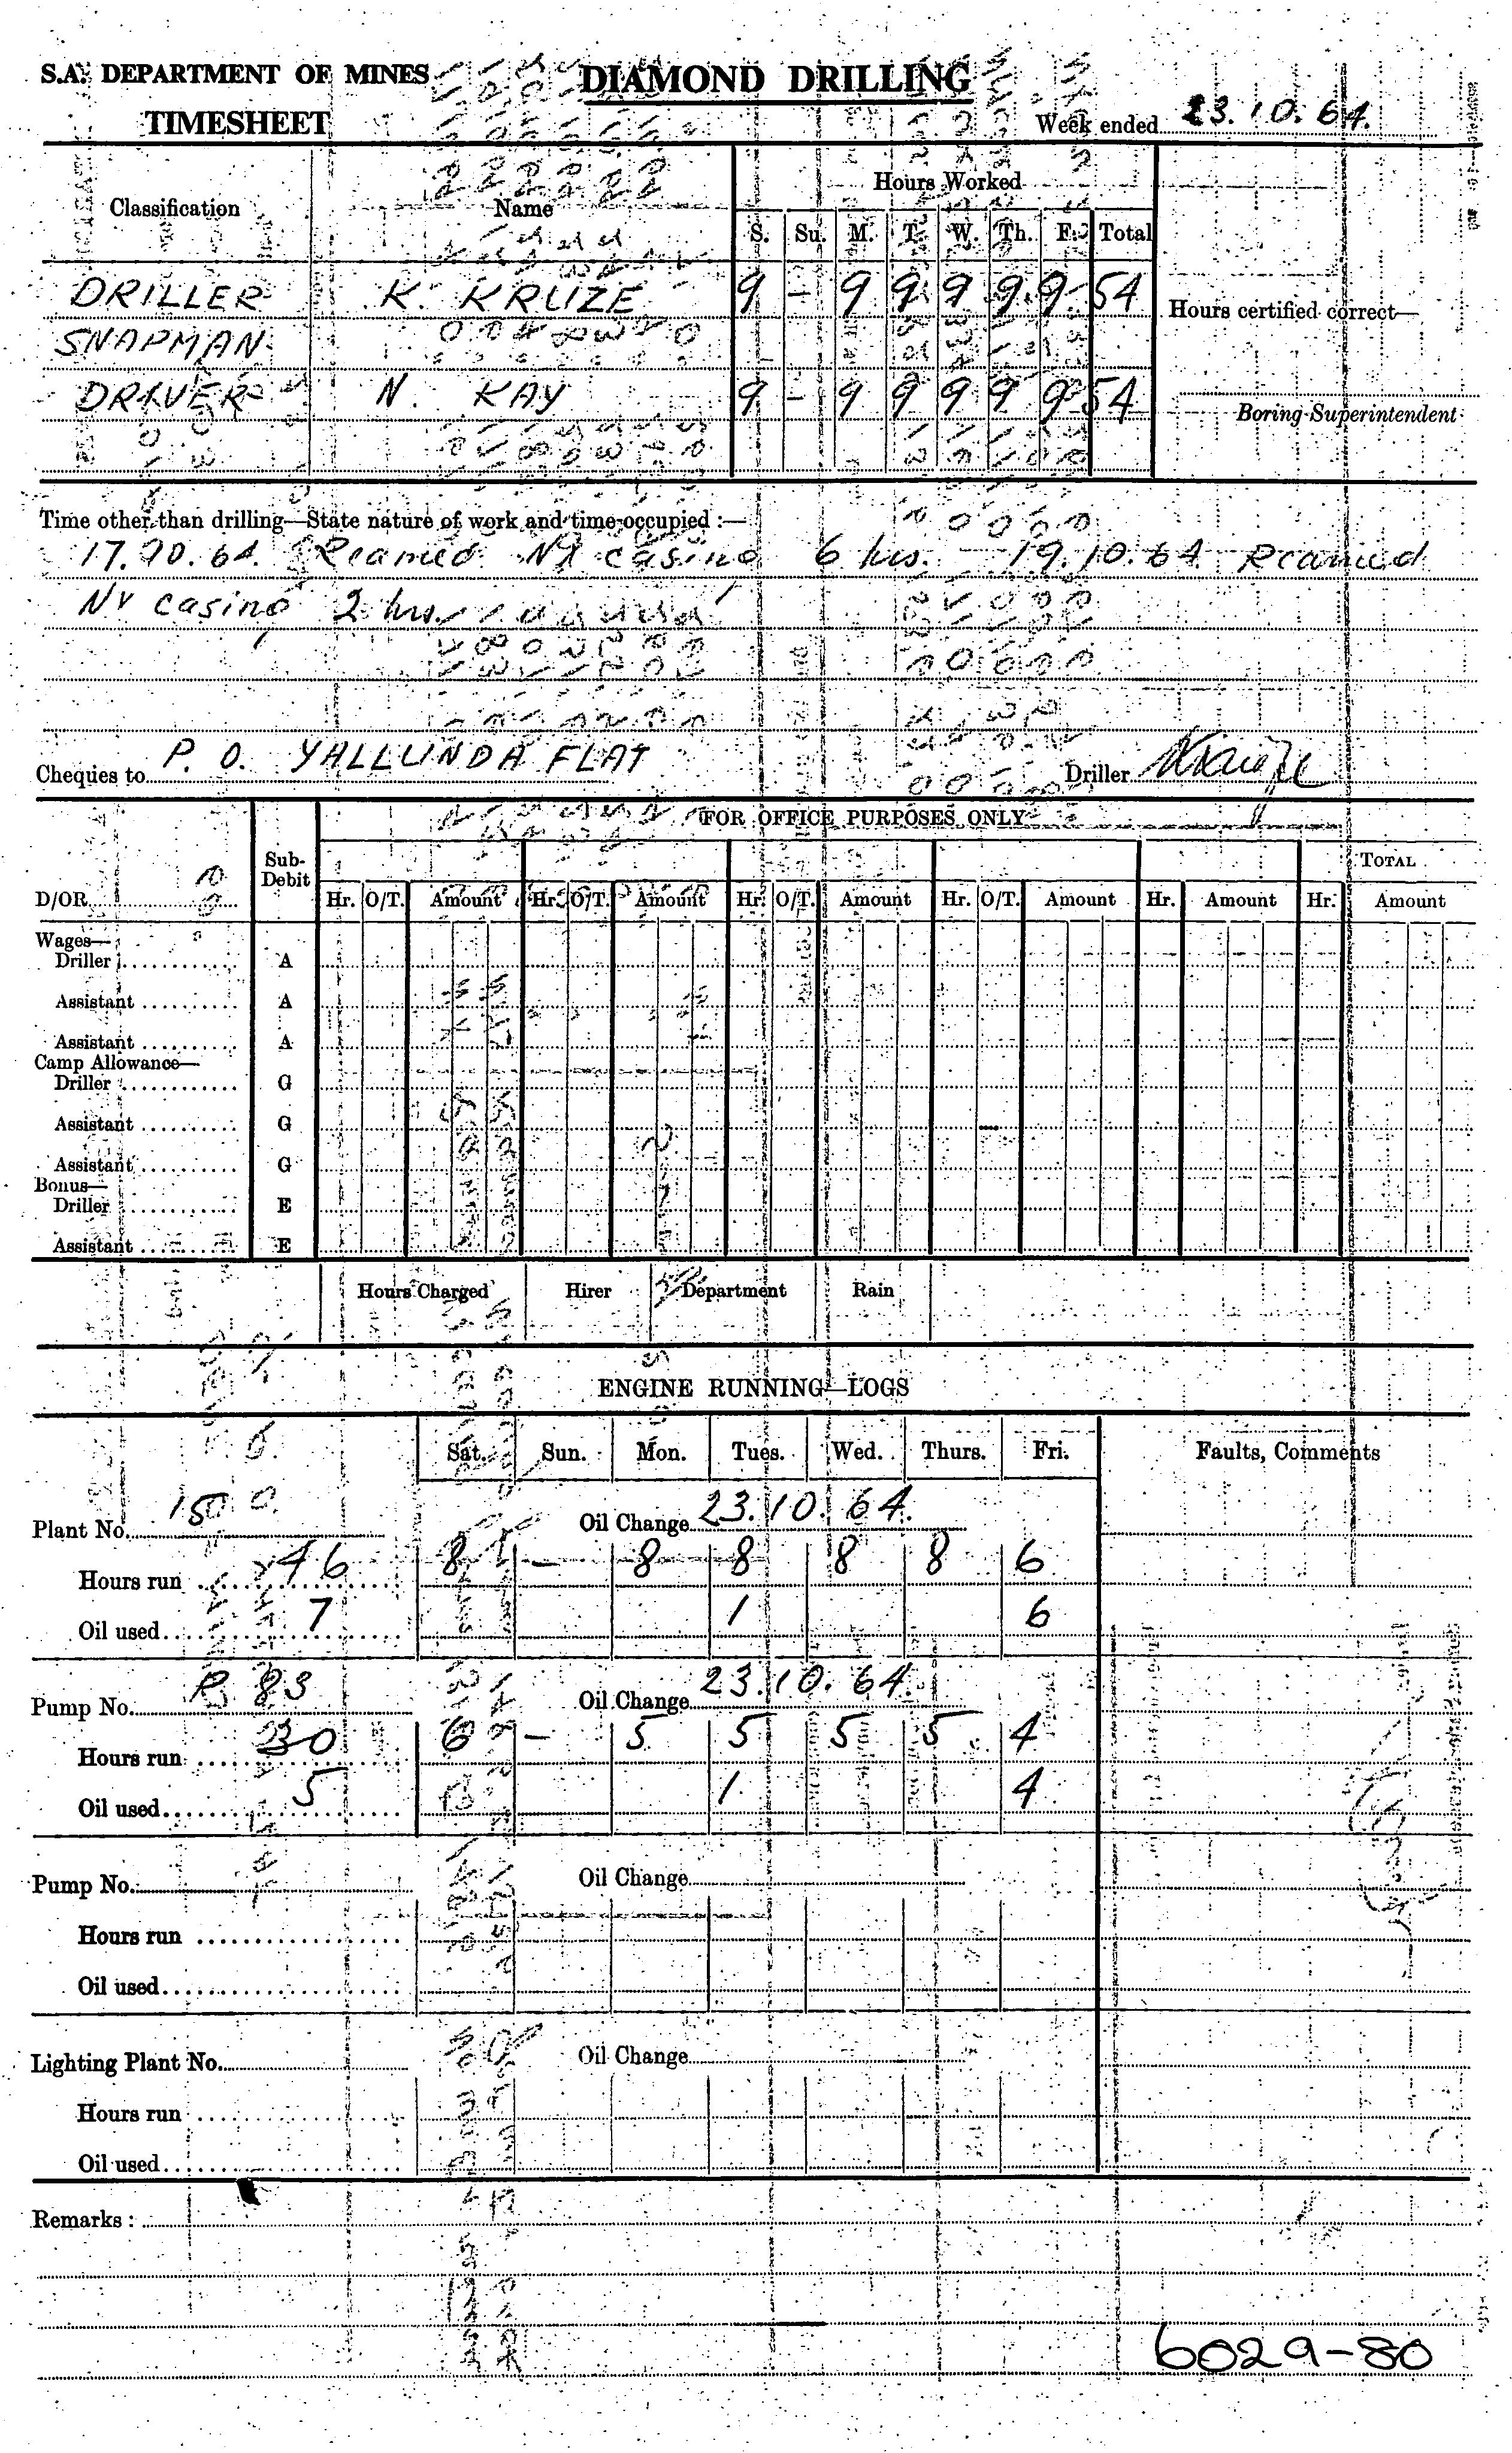 S.A. DEPARTMENT OF MINES
DIAMOND DRILLING
TIMESHEET
Week ended 23.10.64.
Classification Name Hours Worked
S. Su. M. T. W. Th. F. Total
DRILLER K. KRUZE 9 - 9 9 9 9 9 54
Hours certified correct—
SNAPMAN
DRIVER N. KAY 9 - 9 9 9 9 9 54
Boring Superintendent
Time other than drilling—State nature of work and time occupied :—
17.10.64. Reamed NX casing 6 hrs. 19.10.64 Reamed
NX casing 2 hrs.
Cheques to P. O. YALLUNDA FLAT Driller
FOR OFFICE PURPOSES ONLY
D/OR Sub-Debit TOTAL
Hr. O/T. Amount Hr. O/T. Amount Hr. O/T. Amount Hr. O/T. Amount Hr. Amount Hr. Amount
Wages—
Driller A
Assistant A
Assistant A
Camp Allowance—
Driller G
Assistant G
Assistant G
Bonus—
Driller E
Assistant E
Hours Charged Hirer Department Rain
ENGINE RUNNING—LOGS
Sat. Sun. Mon. Tues. Wed. Thurs. Fri. Faults, Comments
Plant No. 150 Oil Change 23.10.64.
Hours run 46 8 - 8 8 8 8 6
Oil used 7 1 6
Pump No. P 83 Oil Change 23.10.64.
Hours run 30 6 - 5 5 5 5 4
Oil used 5 1 4
Pump No. Oil Change
Hours run
Oil used
Lighting Plant No. Oil Change
Hours run
Oil used
Remarks :
6029-80